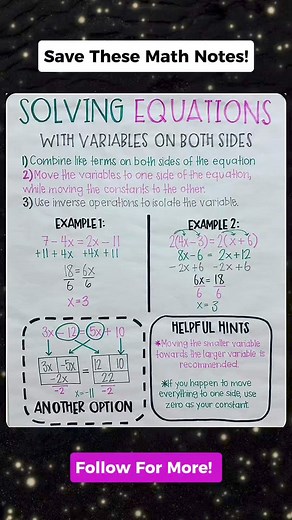 Save These Math Notes!
SOLVING EQUATIONS
WITH VARIABLES ON BOTH SIDES
1) Combine like terms on both sides of the equation
2) Move the variables to one side of the equation,
while moving the constants to the other.
3) Use inverse operations to isolate the variable.
EXAMPLE 1:
7-4x=2x-11
+11 +4x +4x+11
18=6x
6 6
x=3
EXAMPLE 2:
2(4x-3)=2(x+6)
8x-6 = 2x+12
-2x+6 -2x+6
6x=18
6 6
x=3
3x-12=5x+10
3x -5x = 12 10
-2x 22
-2 x=-11 -2
ANOTHER OPTION
HELPFUL HINTS
*Moving the smaller variable
towards the larger variable is
recommended.
*If you happen to move
everything to one side, use
zero as your constant.
Follow For More!